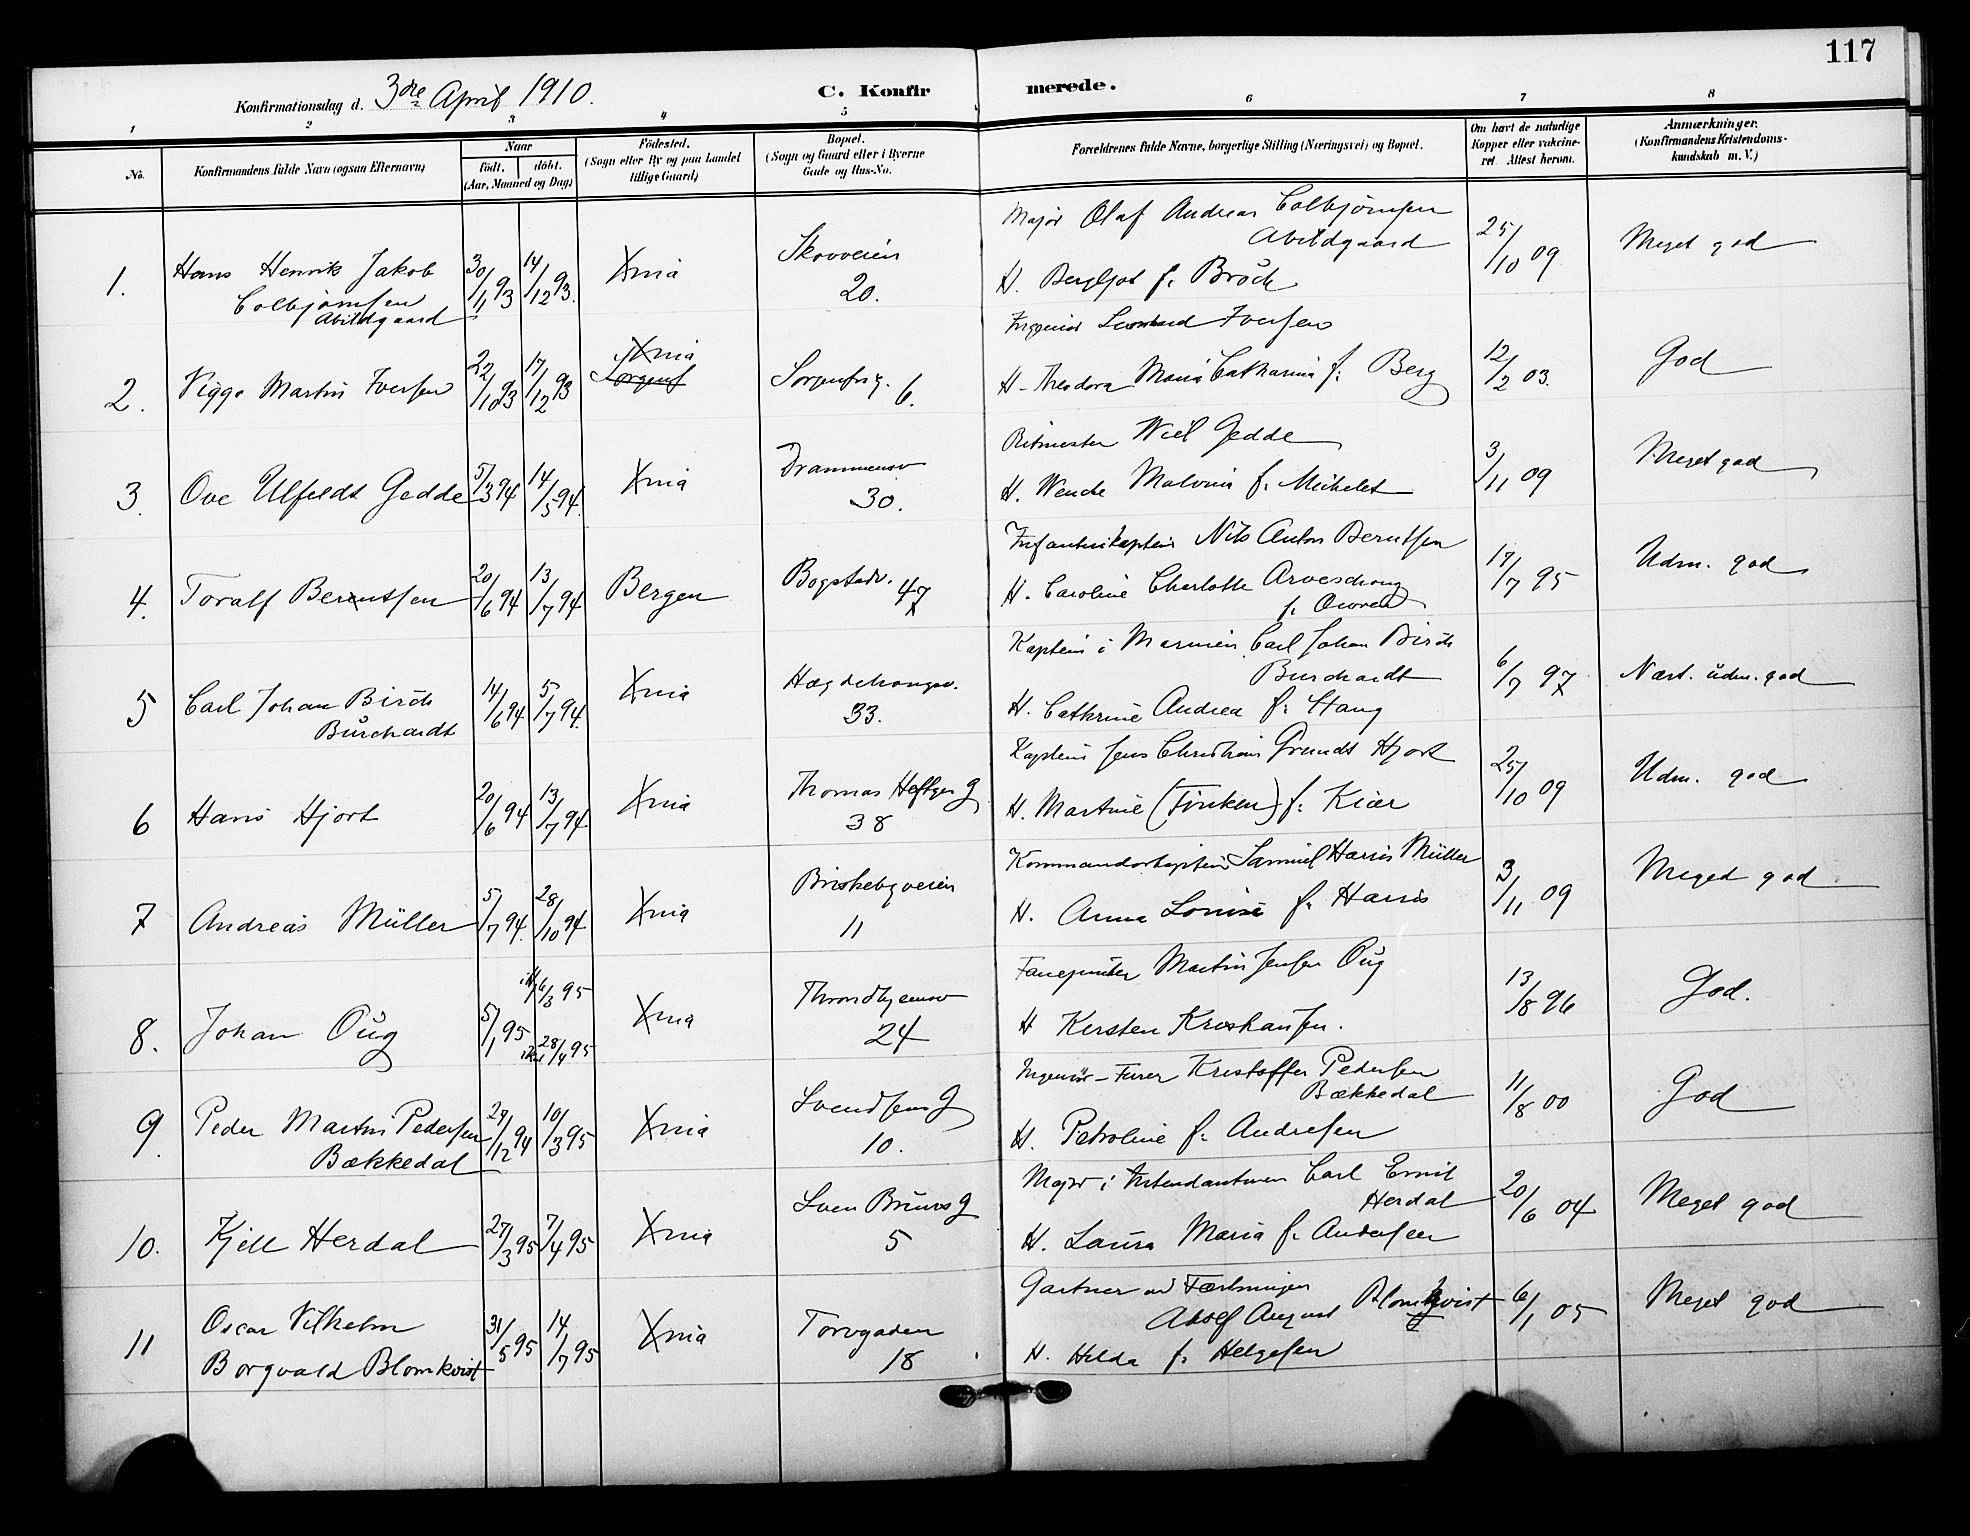 117
Konfirmationsdag d. 3dre April 1910.
C. Konfirmerede.
1 2 3 4 5 6 7 8
No.
Konfirmandens fulde Navn (ogsaa Efternavn)
Naar
født. døbt.
(Aar, Maaned og Dag)
Fødested.
(Sogn eller By og paa Landet
tillige Gaard)
Bopæl.
(Sogn og Gaard eller i Byerne
Gade og Hus-No.
Forældrenes fulde Navne, borgerlige Stilling (Næringsvei) og Bopæl.
Om havt de naturlige
Kopper eller vakcine-
ret. Attest herom.
Anmærkninger.
(Konfirmandens Kristendoms-
kundskab m. V.)
1. Hans Henrik Jakob Colbjørnsen Abildgaard 30/1 93 14/12 93. Xnia Skovveien 20.
Major Olaf Andreas Colbjørnsen Abildgaard
H. Bergljot f. Broch
25/10 09 Meget god
2. Viggo Martin Iversen 22/10 93 17/12 93 Xnia Sorgenf Sorgenfrig. 6.
Ingeniør Leonhard Iversen
H. Theodora Maria Catharina f. Berg
12/2 03. God
3. Ove Ulfeldt Gedde 5/3 94 14/5 94. Xnia Drammensv 30.
Ritmester Wiel Gedde
H. Wenche Malvina f. Michelet
3/11 09 Meget god
4. Toralf Berentsen 20/6 94 13/7 94 Bergen Bogstadv. 47
Infanterikaptein Nils Anton Berntsen
H. Caroline Charlotte f.
17/7 95 Udm. god
5 Carl Johan Birch Burchardt 14/6 94 5/7 94. Xnia Hægdehaugsv. 33.
Kaptein i Marinen Carl Johan Birch Burchardt
H. Cathrine Andrea f. Haug
6/7 97 Næst. udm. god
6 Hans Hjort 20/6 94 13/7 94 Xnia Thomas Heftyes G 38
Kaptein Jens Christian Grundt Hjort
H. Martine (Tinken) f. Kiær
25/10 09 Udm. god
7 Andreas Müller 5/7 94. 28/10 94 Xnia Briskebyveien 11
Kommandørkaptein Samuel Harris Müller
H. Anna Louise f. Harris
3/11 09 Meget god
8. Johan Oug 5/1 95 6/3 95 28/4 95 Xnia Throndhjemsv 24
Fanejunker Martin Jensen Oug
H Kersten Kroshausen.
13/8 96 God.
9. Peder Martin Pedersen Bækkedal 29/12 94 10/3 95 Xnia Svendsens G 10.
Ingeniør-Furer Kristoffer Pedersen Bækkedal
H. Petroline f. Andresen
11/8 00 God
10. Kjell Herdal 27/3 95 7/4 95 Xnia Sven Bruuns G 5
Major i Intendanturen Carl Emil Herdal
H. Laura Maria f. Andersen
20/6 04 Meget god
11 Oscar Vilhelm Borgvald Blomkvist 31/5 95 14/7 95 Xnia Torvgaden 18
Gartner ved Fæstningen Adolf August Blomkvist
H. Hilda f. Helgesen
6/1 05 Meget god